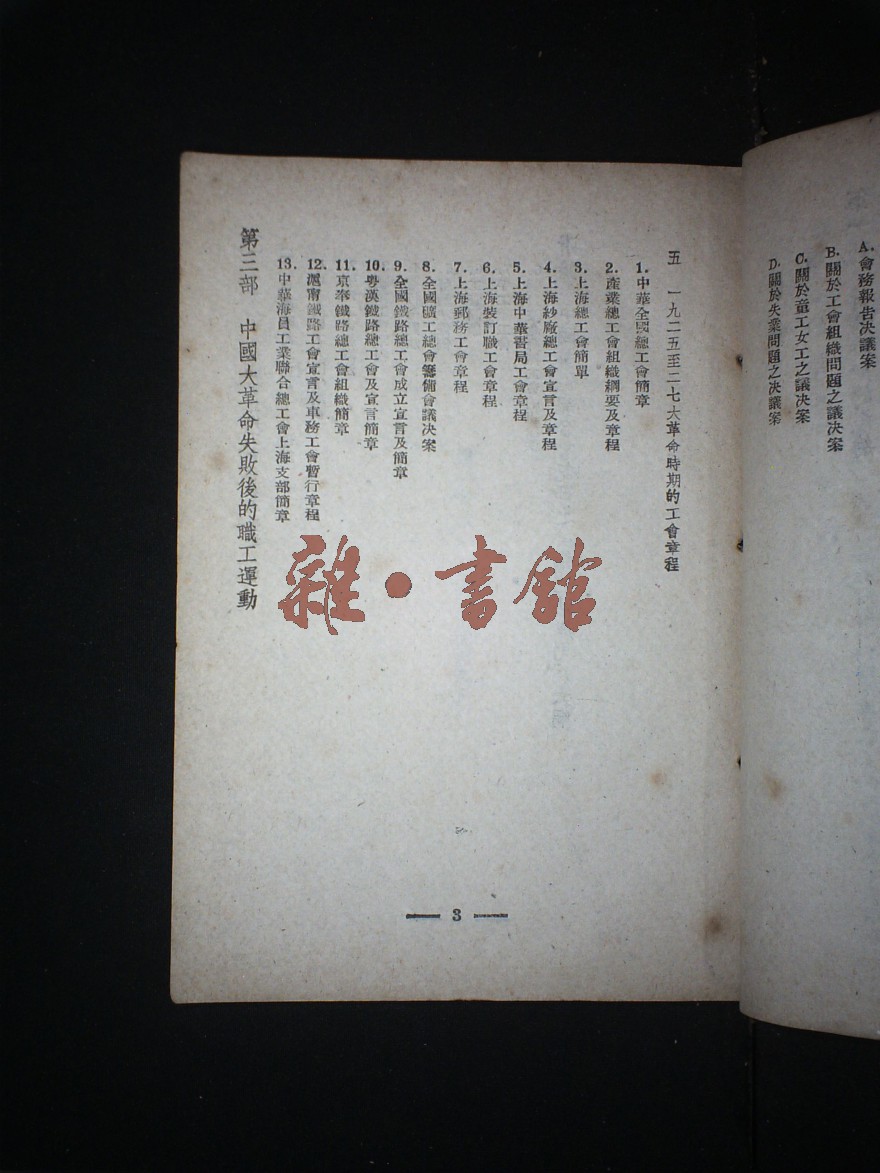 A. 會務報告決議案
B. 關於工會組織問題之議決案
C. 關於童工女工之議決案
D. 關於失業問題之決議案
五 一九二五至二七大革命時期的工會章程
1. 中華全國總工會簡章
2. 產業總工會組織綱要及章程
3. 上海總工會簡單
4. 上海紗廠總工會宣言及章程
5. 上海中華書局工會章程
6. 上海裝訂職工會章程
7. 上海郵務工會章程
8. 全國礦工總會籌備會議決案
9. 全國鐵路總工會成立宣言及簡章
10. 粵漢鐵路總工會及宣言簡章
11. 京奉鐵路總工會組織簡章
12. 滬甯鐵路工會宣言及車務工會暫行章程
13. 中華海員工業聯合總工會上海支部簡章
第三部 中國大革命失敗後的職工運動
3
雜·書館